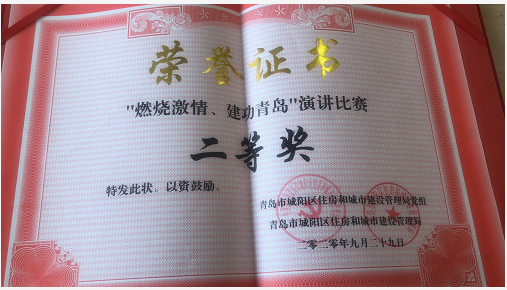 荣誉证书
"燃烧激情、建功青岛"演讲比赛
二等奖
特发此状。以资鼓励。
青岛市城阳区住房和城市建设管理局党组
青岛市城阳区住房和城市建设管理局
二〇二〇年九月二十九日